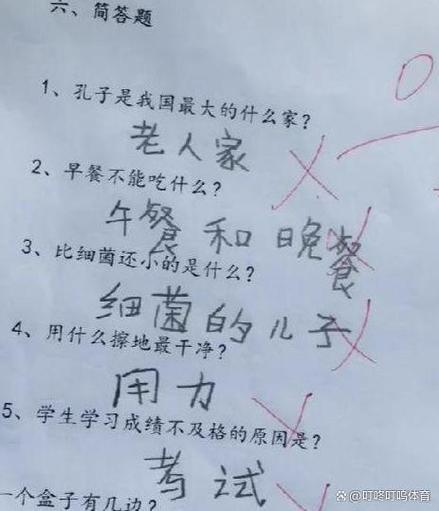 六、简答题
1、孔子是我国最大的什么家?
老人家
2、早餐不能吃什么?
午餐 和 晚餐
3、比细菌还小的是什么?
细菌的儿子
4、用什么擦地最干净?
用力
5、学生学习成绩不及格的原因是?
考试
一个盒子有几边?
@叮咚叮鸣体育